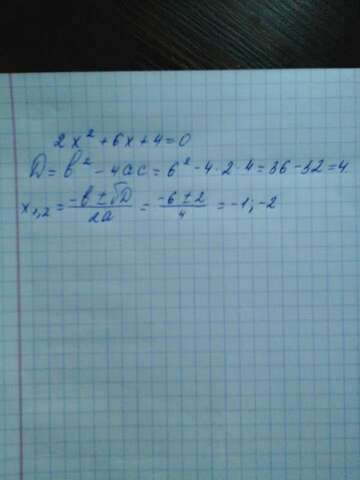 2x² + 6x + 4 = 0
D = b² - 4ac = 6² - 4 · 2 · 4 = 36 - 32 = 4
x₁,₂ = (-b ± √D)/2a = (-6 ± 2)/4 = -1; -2